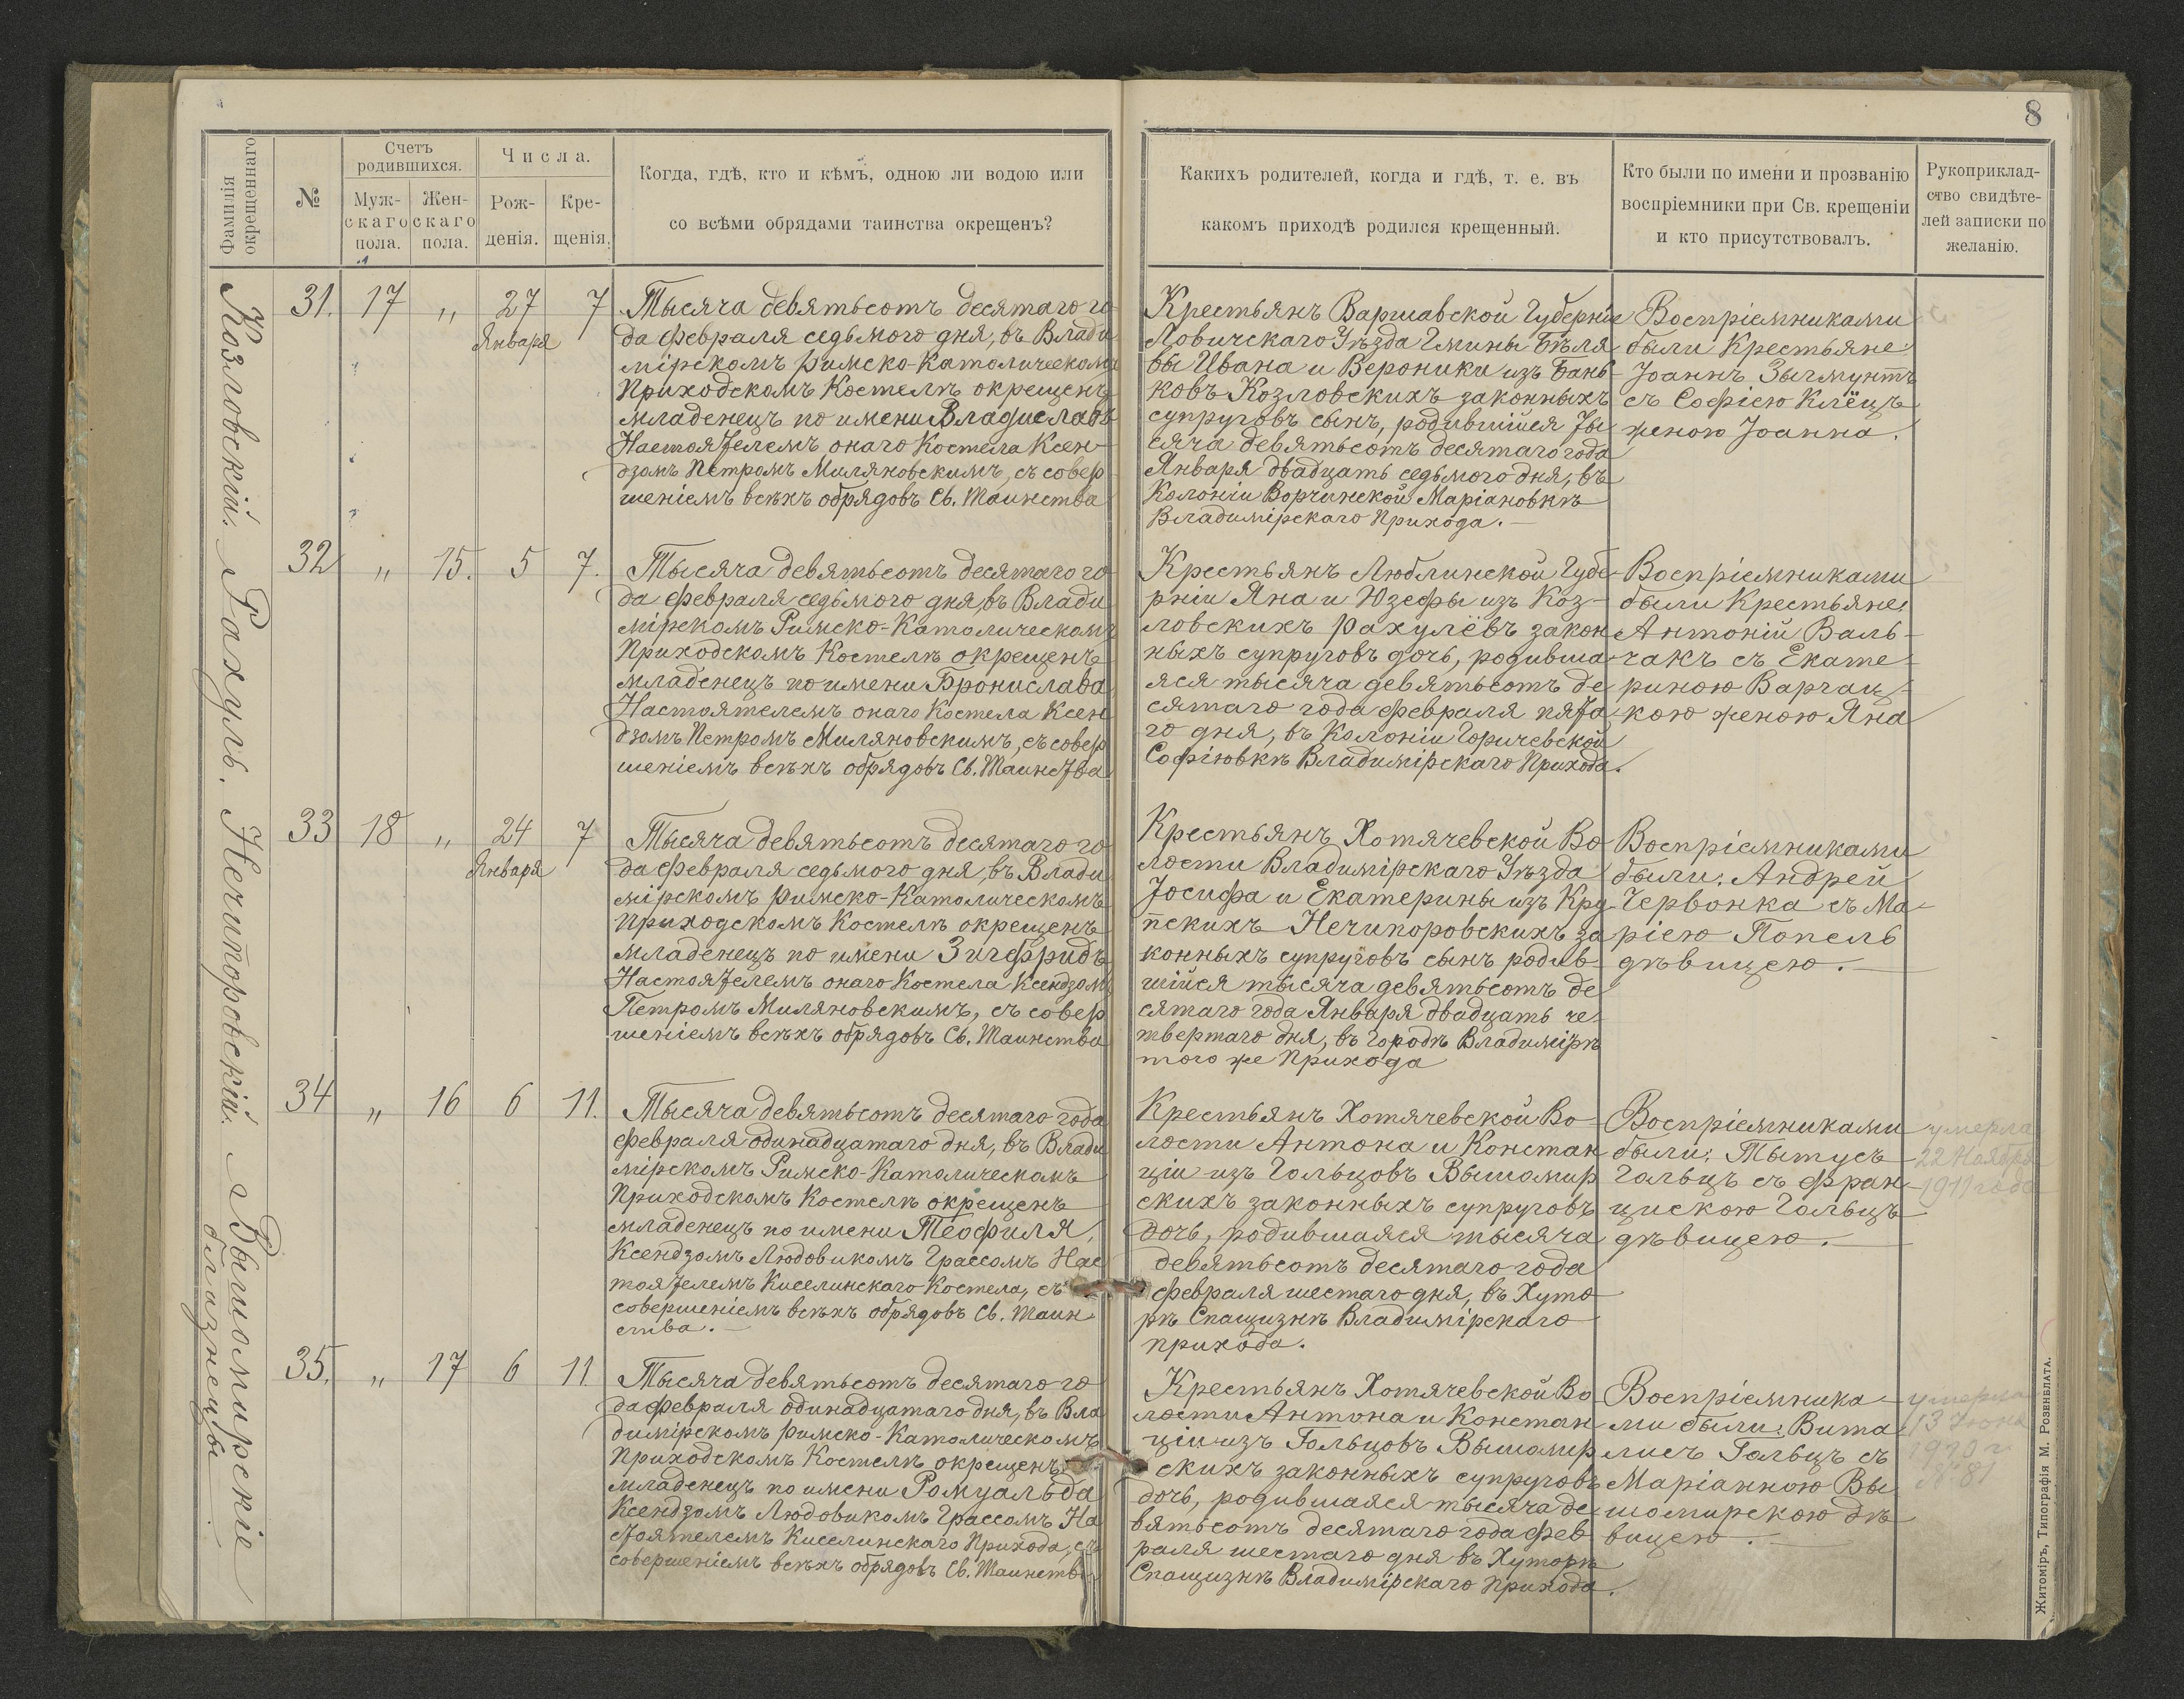 8
Фамилія окрещеннаго
№
Счетъ родившихся.
Муж-
скаго
пола.
Жен-
скаго
пола.
Числа.
Рож-
денія.
Кре-
щенія.
Когда, гдѣ, кто и кѣмъ, одною ли водою или
со всѣми обрядами таинства окрещенъ?
Какихъ родителей, когда и гдѣ, т. е. въ
какомъ приходѣ родился крещенный.
Кто были по имени и прозванію
воспріемники при Св. крещеніи
и кто присутствовалъ.
Рукоприклад-
ство свидѣте-
лей записки по
желанію.
Козловскій.
31. 17 „ 27 7
Января
Тысяча девятьсотъ десятаго го
да февраля седьмого дня, въ Влади
мірскомъ Римско-Католическомъ
Приходскомъ Костелѣ окрещенъ
младенецъ по имени Владиславъ
Настоятелемъ онаго Костела Ксен
дзомъ Петромъ Миляновскимъ, съ совер
шеніемъ всѣхъ обрядовъ Св. Таинства
Крестьянъ Варшавской Губерніи
Ловичскаго Уѣзда Гмины Бѣля
вы Ивана и Вероники изъ Бань
ковъ Козловскихъ законныхъ
супруговъ сынъ, родившійся ты
сяча девятьсотъ десятаго года
Января двадцать седьмого дня, въ
Колоніи Ворчинской Маріановкѣ
Владимірскаго Прихода.
Воспріемниками
были Крестьяне:
Іоаннъ Зыгмунтъ
съ Софіею Клёцъ
женою Іоанна.
Рахуль.
32 „ 15. 5 7.
Тысяча девятьсотъ десятаго го
да февраля седьмого дня, въ Влади
мірскомъ Римско-Католическомъ
Приходскомъ Костелѣ окрещенъ
младенецъ по имени Бронислава
Настоятелемъ онаго Костела Ксен
дзомъ Петромъ Миляновскимъ, съ совер
шеніемъ всѣхъ обрядовъ Св. Таинства
Крестьянъ Люблинской Губе
рніи Яна и Юзефы изъ Коз-
ловскихъ Рахулёвъ закон
ныхъ супруговъ дочь, родивша
яся тысяча девятьсотъ де
сятаго года февраля пята
го дня, въ Колоніи Горичевской
Софіювкѣ Владимірскаго Прихода.
Воспріемниками
были Крестьяне:
Антоній Валь-
чакъ съ Екате-
риною Варчац-
кою женою Яна
Нечипоровскій.
33 18 „ 24 7
Января
Тысяча девятьсотъ десятаго го
да февраля седьмого дня, въ Влади
мірскомъ Римско-Католическомъ
Приходскомъ Костелѣ окрещенъ
младенецъ по имени Зигфридъ
Настоятелемъ онаго Костела Ксендзомъ
Петромъ Миляновскимъ, съ совер
шеніемъ всѣхъ обрядовъ Св. Таинства
Крестьянъ Хотячевской Во
лости Владимірскаго Уѣзда
Іосифа и Екатерины изъ Кру
пскихъ Нечипоровскихъ за
конныхъ супруговъ сынъ родив-
шійся тысяча девятьсотъ де
сятаго года Января двадцать че
твертаго дня, въ городѣ Владимірѣ
того же Прихода
Воспріемниками
были: Андрей
Червонка съ Ма-
ріею Попель
дѣвицею.
Вышомирскіе
близнецы
34 „ 16 6 11.
Тысяча девятьсотъ десятаго года
февраля одинадцатаго дня, въ Влади
мірскомъ Римско-Католическомъ
Приходскомъ Костелѣ окрещенъ
младенецъ по имени Теофиля,
Ксендзомъ Людовикомъ Грассомъ Нас
тоятелемъ Киселинскаго Костела, съ
совершеніемъ всѣхъ обрядовъ Св. Таин
ства.
Крестьянъ Хотячевской Во-
лости Антона и Констан
ціи изъ Гольцовъ Вышомир
скихъ законныхъ супруговъ
дочь, родившаяся тысяча
девятьсотъ десятаго года
февраля шестаго дня, въ Хуто
рѣ Спащизнѣ Владимірскаго
прихода.
Воспріемниками
были: Тытусъ
Гольцъ съ Фран-
цискою Гольцъ
дѣвицею.
умерла
22 Ноября
1911 года
35. „ 17 6 11.
Тысяча девятьсотъ десятаго го
да февраля одинадцатаго дня, въ Вла
димірскомъ Римско-Католическомъ
Приходскомъ Костелѣ окрещенъ
младенецъ по имени Ромуальда
Ксендзомъ Людовикомъ Грассомъ На
стоятелемъ Киселинскаго Прихода, съ
совершеніемъ всѣхъ обрядовъ Св. Таинства
Крестьянъ Хотячевской Во
лости Антона и Констан
ціи изъ Гольцовъ Вышомир
скихъ законныхъ супруговъ
дочь, родившаяся тысяча де
вятьсотъ десятаго года фев
раля шестаго дня въ Хуторѣ
Спащизнѣ Владимірскаго Прихода.
Воспріемника-
ми были: Вита
лисъ Гольцъ съ
Маріанною Вы
шомирскою дѣ
вицею.
умерла
13
Житоміръ, Типографія М. Розенблата.